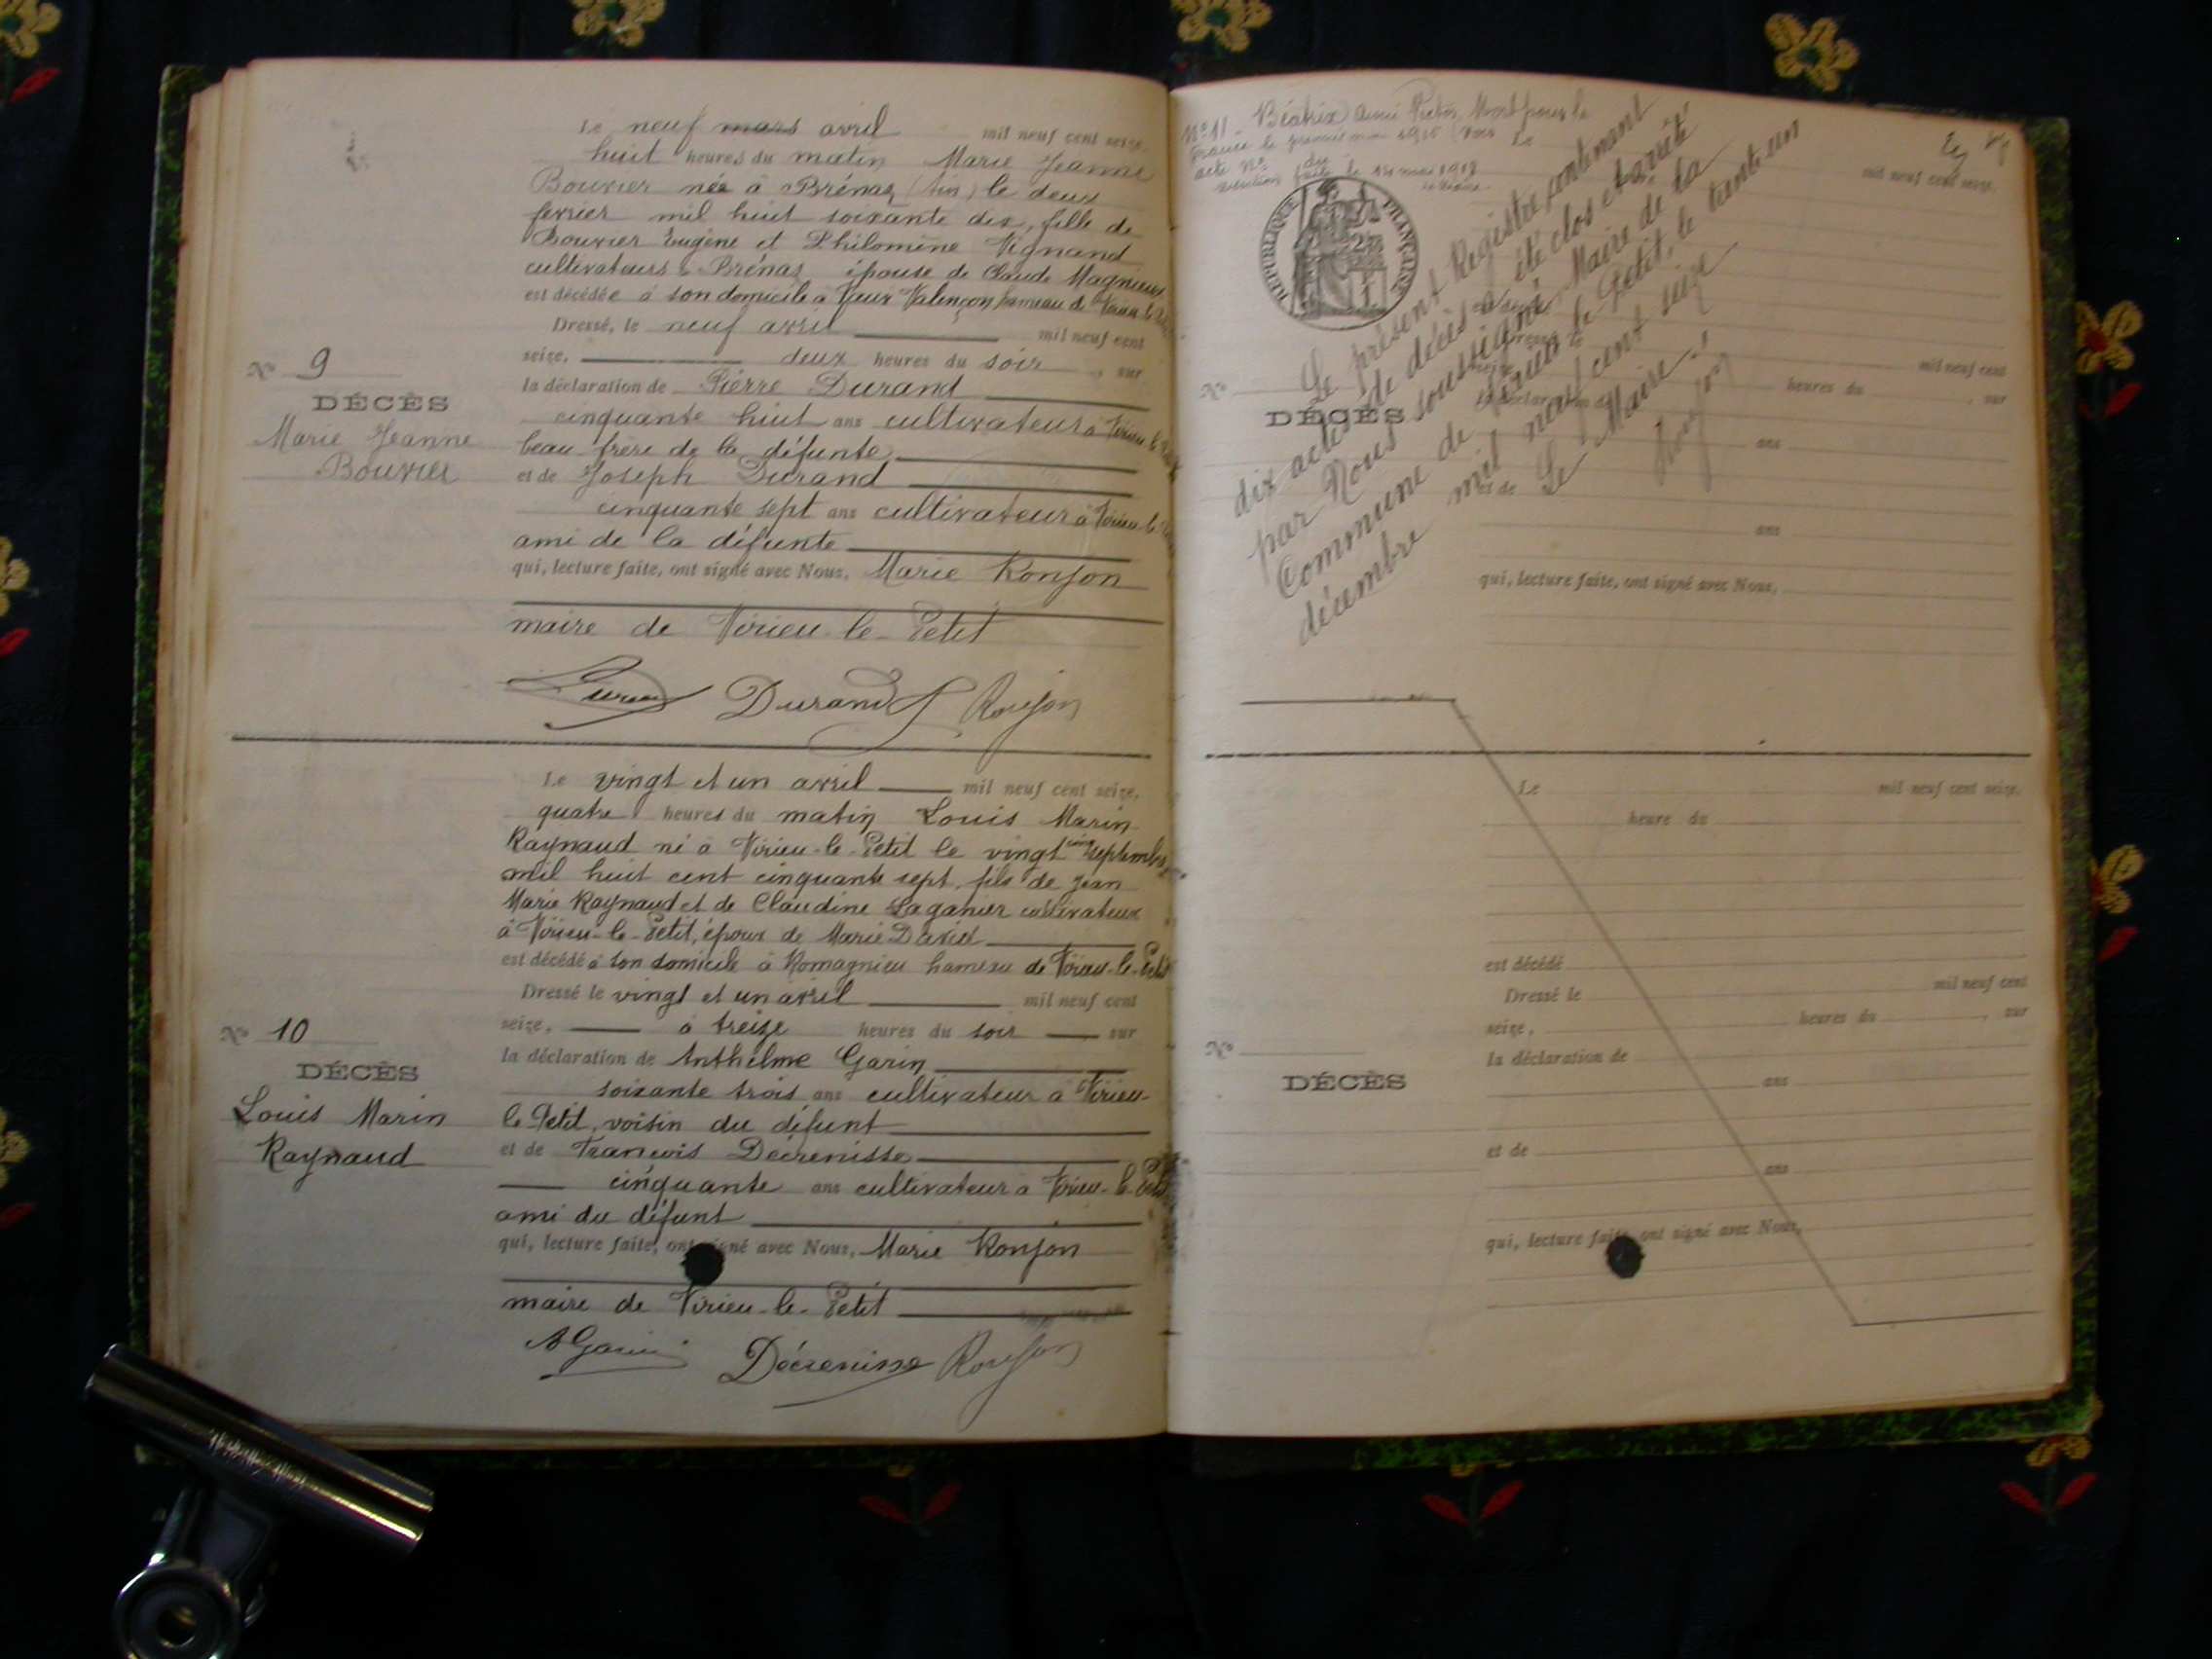 Le neuf mars avril mil neuf cent seize,
huit heures du matin Marie Jeanne
Bouvier née à Brénaz (Ain) le deux
fevrier mil huit soixante dix, fille de
Bouvier Eugène et Philomène Vignand
cultivateurs à Brénaz, épouse de Claude Magnieux
est décédée à son domicile à Vaux Valençon hameau de Virieu le
Dressé, le neuf avril mil neuf cent
seize, deux heures du soir, sur
la déclaration de Pierre Durand
cinquante huit ans cultivateur à Virieu le
beau frère de la défunte
et de Joseph Durand
cinquante sept ans cultivateur à Virieu-le-
ami de la défunte
qui, lecture faite, ont signé avec Nous, Marie Ronjon
maire de Virieu-le-Petit
Durand Ronjon
N° 9
DÉCÈS
Marie Jeanne
Bouvier
Le vingt et un avril mil neuf cent seize,
quatre heures du matin Louis Marin
Raynaud né à Virieu-le-Petit le vingt cinq septembre
mil huit cent cinquante sept, fils de Jean
Marie Raynaud et de Claudine Laganier cultivateur
à Virieu-le-Petit, époux de Marie David
est décédé à son domicile à Romagnieu hameau de Virieu-le-Petit
Dressé le vingt et un avril mil neuf cent
seize, à treize heures du soir sur
la déclaration de Anthelme Garin
soixante trois ans cultivateur à Virieu-
le Petit, voisin du défunt
et de François Décrenisse
cinquante ans cultivateur à Virieu-le-Petit
ami du défunt
qui, lecture faite, ont signé avec Nous, Marie Ronjon
maire de Virieu-le-Petit
A Garin Décrenisse Ronjon
N° 10
DÉCÈS
Louis Marin
Raynaud
N° 11 - Béatrix Mort pour la
France le premier
acte N°
le 14 mai 1918
RÉPUBLIQUE FRANÇAISE
Le présent Registre contenant
dix actes de décès a été clos et arrêté
par Nous soussigné Maire de la
Commune de Virieu le Petit, le trente un
décembre mil neuf cent seize
Le Maire
Ronjon
Le mil neuf cent seize,
mil neuf cent
heures du, sur
N°
DÉCÈS
la déclaration de
ans
et de
ans
qui, lecture faite, ont signé avec Nous,
Le mil neuf cent seize,
heure du
est décédé
Dressé le mil neuf cent
seize, heures du, sur
N°
la déclaration de
DÉCÈS
ans
et de
ans
qui, lecture faite, ont signé avec Nous,